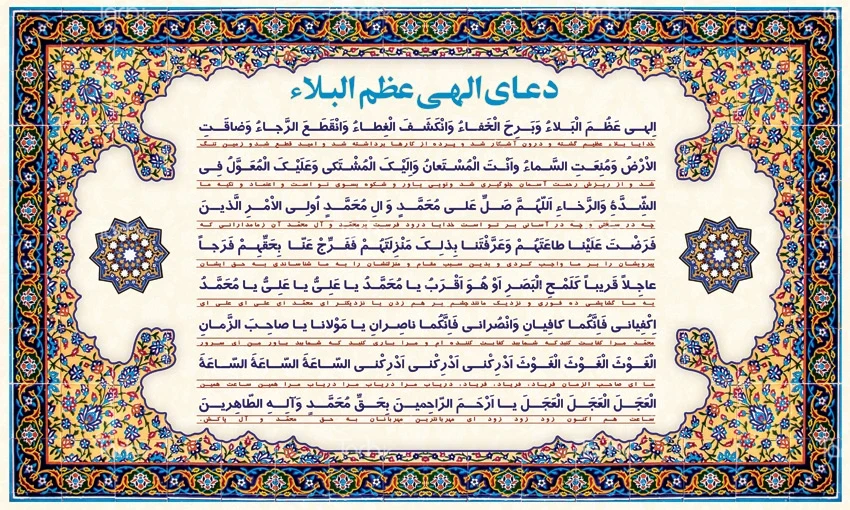 دعای الهی عظم البلاء
اِلهی عَظُمَ الْبَلاءُ وَبَرِحَ الْخَفاءُ وَانْکَشَفَ الْغِطاءُ وَانْقَطَعَ الرَّجاءُ وَضاقَتِ
خدایا بلاء عظیم گشته و درون آشکار شد و پرده از کارها برداشته شد و امید قطع شد و زمین تنگ
الاَْرْضُ وَمُنِعَتِ السَّماءُ واَنْتَ الْمُسْتَعانُ وَاِلَیْکَ الْمُشْتَکی وَعَلَیْکَ الْمُعَوَّلُ فِی
شد و از ریزش رحمت آسمان جلوگیری شد وتویی یاور و شکوه بسوی تو است و اعتماد و تکیه ما
الشِّدَّةِ وَالرَّخاءِ اَللّهُمَّ صَلِّ عَلی مُحَمَّدٍ وَ الِ مُحَمَّدٍ اُولِی الاَْمْرِ الَّذینَ
چه در سختی و چه در آسانی بر تو است خدایا درود فرست برمحمّد و آل محمّد آن زمامدارانی که
فَرَضْتَ عَلَیْنا طاعَتَهُمْ وَعَرَّفْتَنا بِذلِکَ مَنْزِلَتَهُمْ فَفَرِّجْ عَنّا بِحَقِّهِمْ فَرَجاً
پیرویشان را بر ما واجب کردی و بدین سبب مقام و منزلتشان را به ما شناساندی به حق ایشان
عاجِلاً قَریباً کَلَمْحِ الْبَصَرِ اَوْ هُوَ اَقْرَبُ یا مُحَمَّدُ یا عَلِیُّ یا عَلِیُّ یا مُحَمَّدُ
به ما گشایشی ده فوری و نزدیک مانندچشم بر هم زدن یا نزدیکتر ای محمّد ای علی ای علی ای
اِکْفِیانی فَاِنَّکُما کافِیانِ وَانْصُرانی فَاِنَّکُما ناصِرانِ یا مَوْلانا یا صاحِبَ الزَّمانِ
محمّد مرا کفایت کنیدکه شمایید کفایت کننده ام و مرا یاری کنید که شمایید یاور من ای سرور
الْغَوْثَ الْغَوْثَ الْغَوْثَ اَدْرِکْنی اَدْرِکْنی اَدْرِکْنی السّاعَةَ السّاعَةَ السّاعَةَ
ما ای صاحب الزمان فریاد، فریاد، فریاد، دریاب مرا دریاب مرا دریاب مرا همین ساعت همین
الْعَجَلَ الْعَجَلَ الْعَجَلَ یا اَرْحَمَ الرّاحِمینَ بِحَقِّ مُحَمَّدٍ وَآلِهِ الطّاهِرینَ
ساعت هم اکنون زود زود زود ای مهربانترین مهربانان به حق محمّد و آل پاکش.